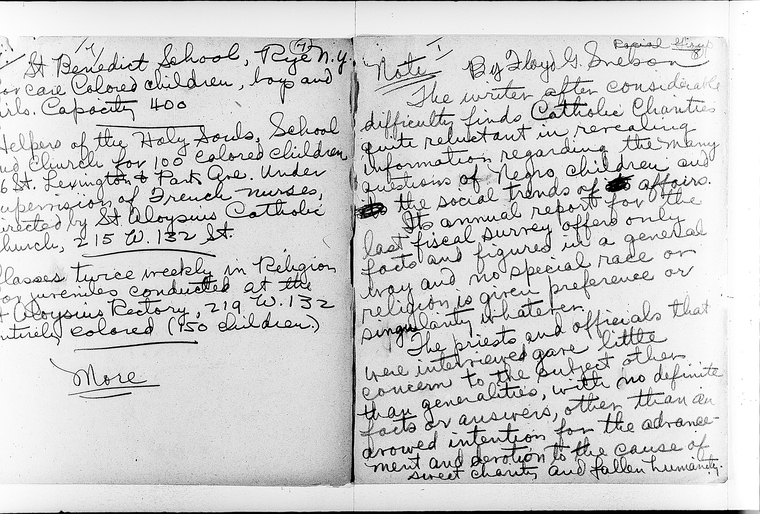 St Benedict School, Rye N.Y.
care Colored children, boys and
Capacity 400
Helpers of the Holy Souls, School
Church for 100 colored children
St. Lexington & Park Ave. Under
supervision of French nurses,
directed by St Aloysius Catholic
Church, 215 W. 132 St.
Classes twice weekly in Religion
for juveniles conducted at the
Aloysius Rectory, 219 W. 132
entirely colored (150 children.)
More
1
Note By Floyd G. Snelson
The writer after considerable
difficulty finds Catholic Charities
quite reluctant in revealing
information regarding the many
questions of Negro children and
the social trends of affairs.
Its annual report for the
last fiscal survey offers only
facts and figures in a general
way and no special race or
religion is given preference or
singularity whatever.
The priests and officials that
were interviewed gave little
concern to the subject other
than generalities, with no definite
facts or answers, other than an
avowed intention for the advance-
ment and devotion to the cause of
sweet charity and fallen humanity.